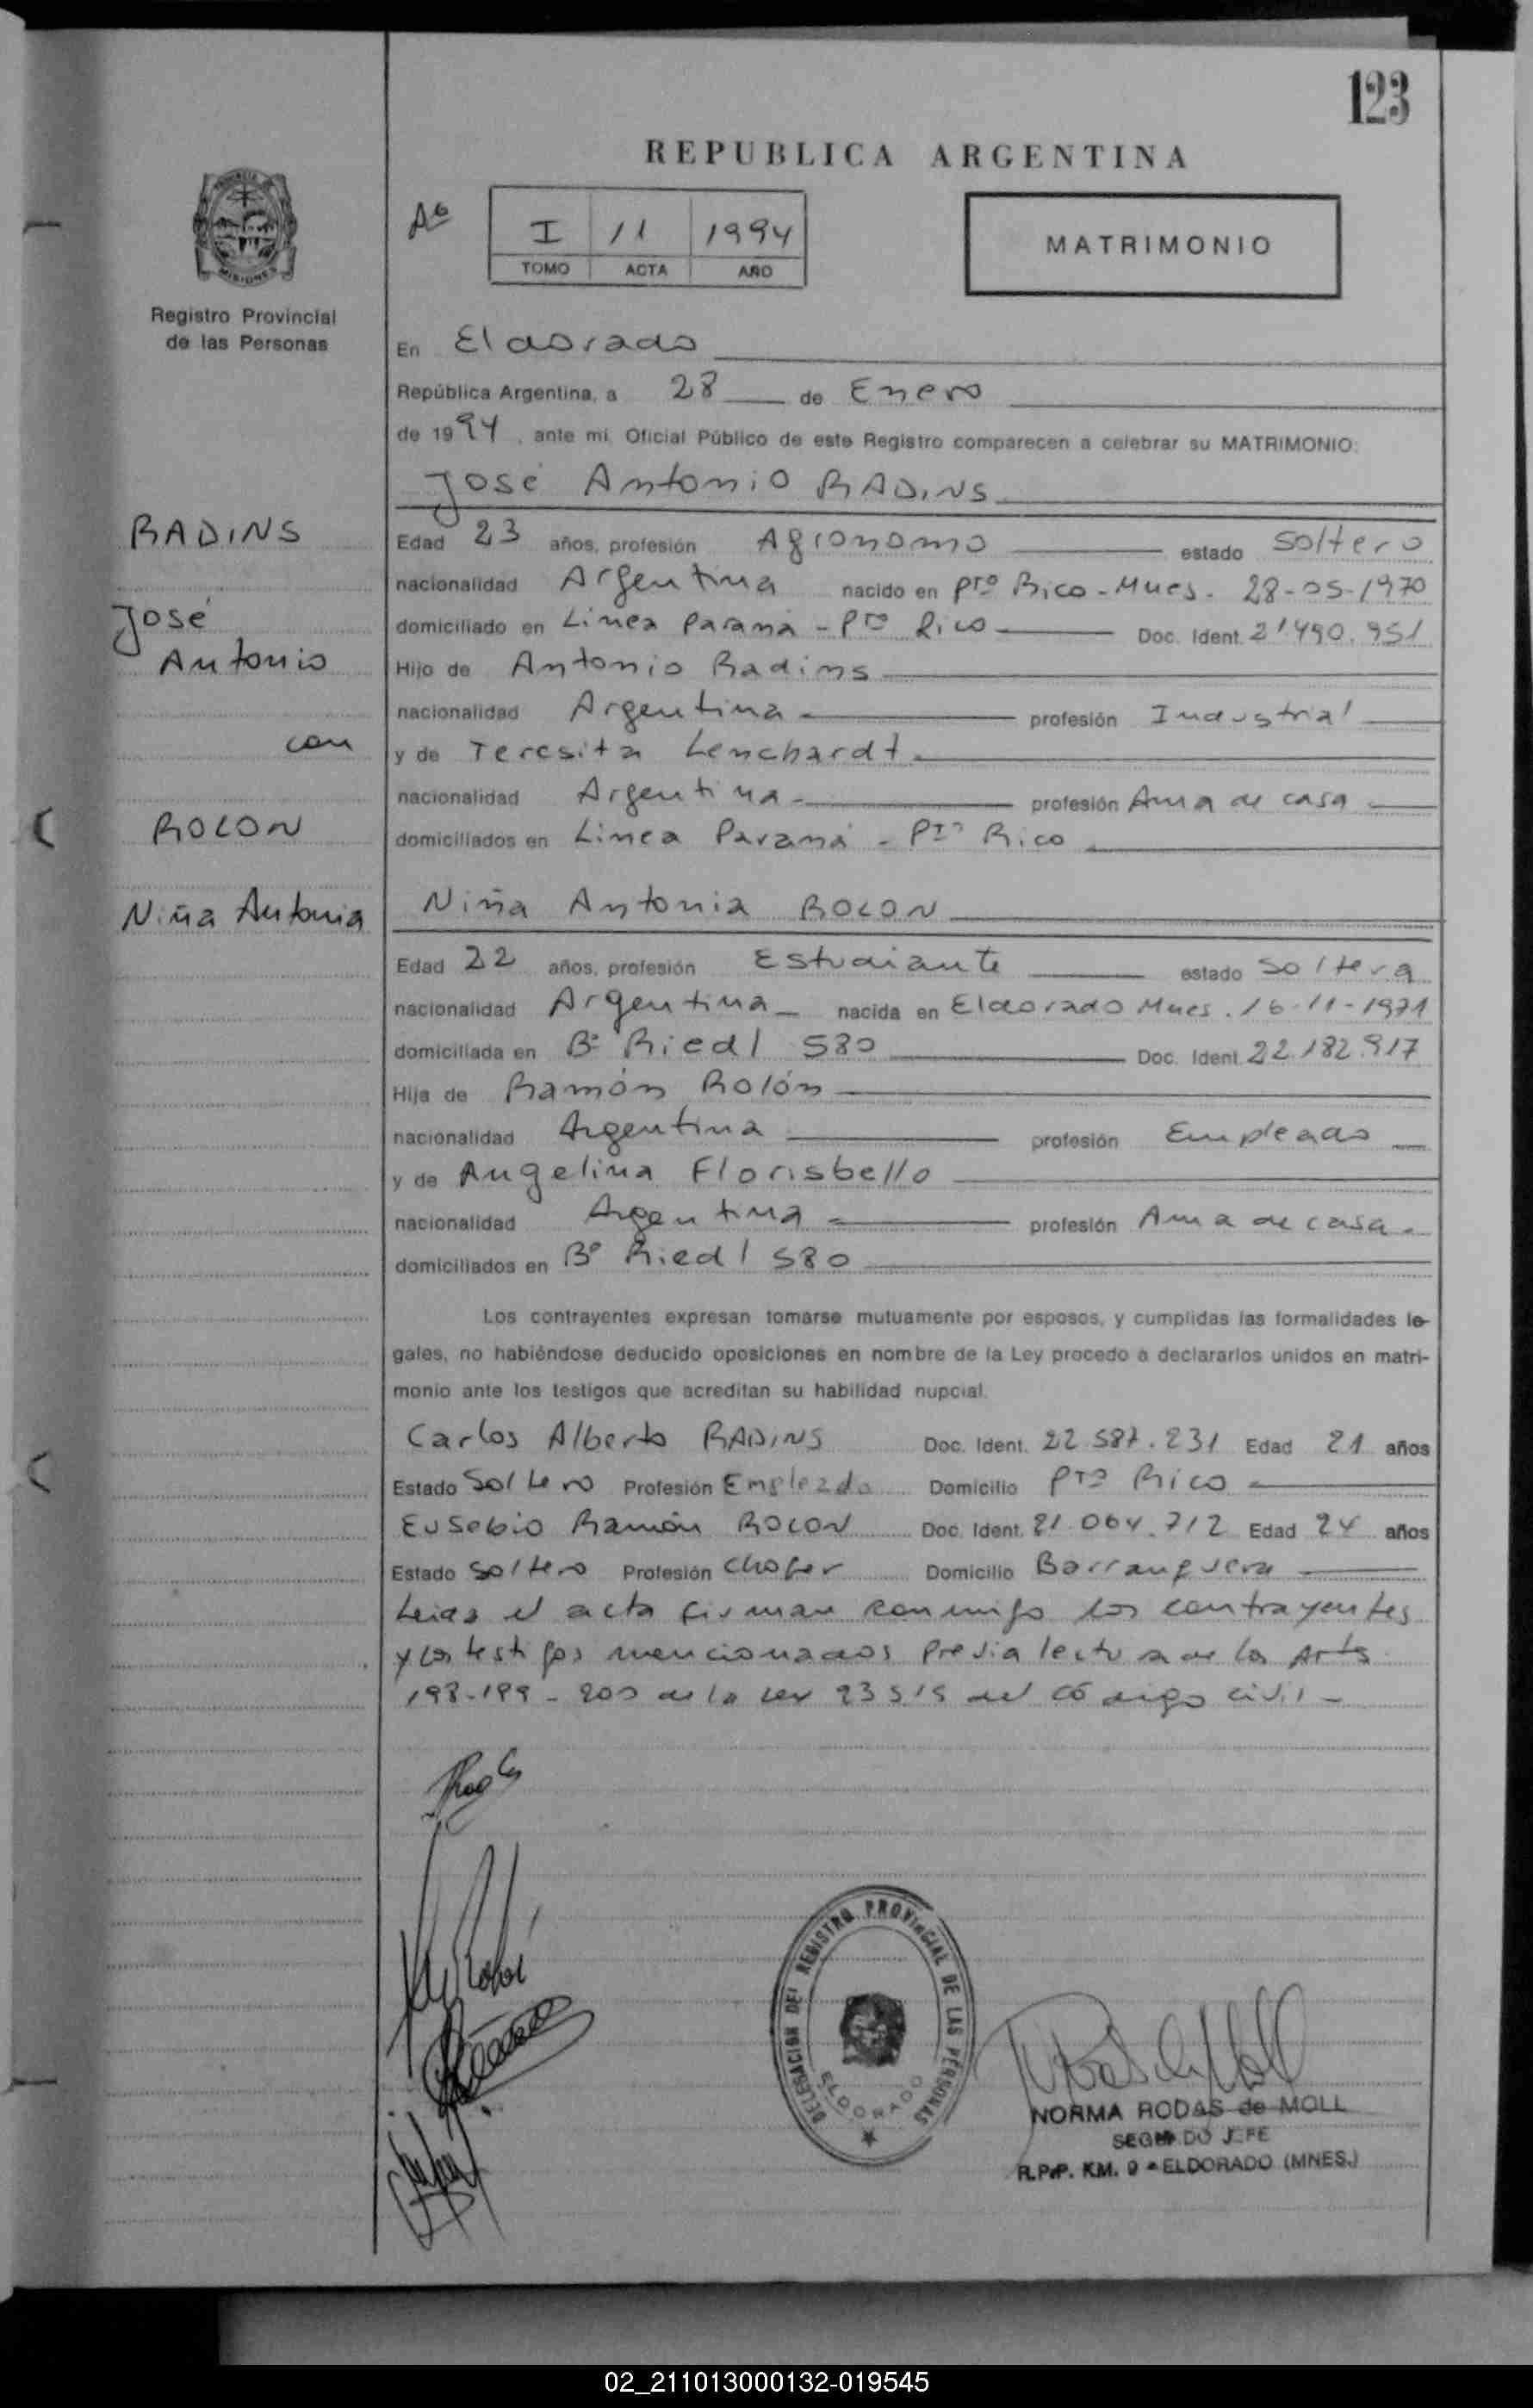 123
REPUBLICA ARGENTINA
I 11 1994
TOMO ACTA AÑO
MATRIMONIO
PROVINCIA DE MISIONES
Registro Provincial
de las Personas
En Eldorado
República Argentina, a 28 de Enero
de 1994, ante mí Oficial Público de este Registro comparecen a celebrar su MATRIMONIO:
José Antonio RADINS
RADINS
Edad 23 años, profesión Agronomo estado soltero
nacionalidad Argentina nacido en Pto Rico - Mnes. 28-05-1970
José
domiciliado en Linea Paraná - Pto Rico Doc. Ident. 21.490.951
Antonio
Hijo de Antonio Radins
nacionalidad Argentina profesión Industrial
con
y de Teresita Lenchardt
nacionalidad Argentina profesión Ama de casa
ROLON
domiciliados en Linea Paraná - Pto Rico
Niña Antonia
Niña Antonia ROLON
Edad 22 años, profesión Estudiante estado soltera
nacionalidad Argentina nacida en Eldorado Mnes. 16-11-1971
domiciliada en Bº Riedl 580 Doc. Ident. 22.182.917
Hija de Ramón Rolón
nacionalidad Argentina profesión Empleado
y de Angelina Florisbello
nacionalidad Argentina profesión Ama de casa
domiciliados en Bº Riedl 580
Los contrayentes expresan tomarse mutuamente por esposos, y cumplidas las formalidades le-
gales, no habiéndose deducido oposiciones en nombre de la Ley procedo a declararlos unidos en matri-
monio ante los testigos que acreditan su habilidad nupcial.
Carlos Alberto RADINS Doc. Ident. 22.587.231 Edad 21 años
Estado Soltero Profesión Empleado Domicilio Pto Rico
Eusebio Ramón ROLON Doc. Ident. 21.064.712 Edad 24 años
Estado soltero Profesión chofer Domicilio Barranquera
Leida el acta firman conmigo los contrayentes
y los testigos mencionados previa lectura de los Arts
198-199-200 de la Ley 23515 del código civil -
DELEGACION DEL REGISTRO PROVINCIAL DE LAS PERSONAS
ELDORADO
NORMA RODAS de MOLL
SEGUNDO JEFE
R.P.P. KM. 9 - ELDORADO (MNES.)
02_211013000132-019545